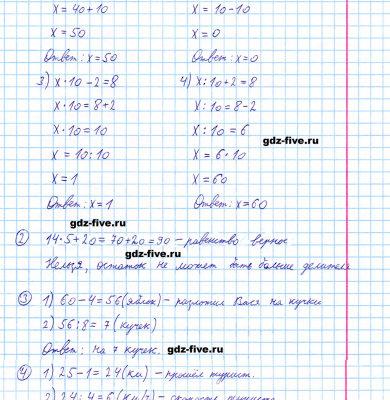 x = 40+10 x = 10-10
x = 50 x = 0
Ответ: x = 50 Ответ: x=0
3) x·10-2=8 4) x:10+2=8
x·10=8+2 x:10=8-2
x·10=10 x:10=6
gdz-five.ru
gdz-five.ru
x = 10:10 x = 6·10
x=1 x=60
Ответ: x=1 Ответ: x=60
gdz-five.ru
② 14·5+20=70+20=90 - равенство верное
gdz-five.ru
Нельзя, остаток не может быть больше делителя
③ 1) 60-4=56 (яблок) - разложил Вася на кучки
2) 56:8=7 (кучек)
Ответ: на 7 кучек. gdz-five.ru
④ 1) 25-1=24 (км) - прошёл турист.
2) 24:4=6 (км/ч) - скорость туриста